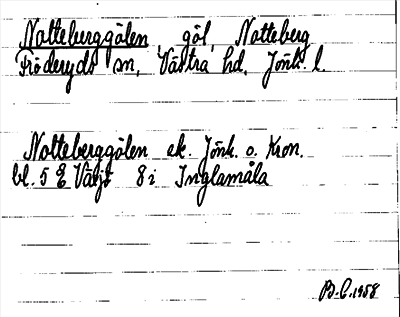 Notteberggölen, göl, Notteberg
Fröderyds sn, Västra hd, Jönk. l.
Notteberggölen ek. Jönk. o. Kron.
bl. 5 Ö Växjö 8 i Inglamåla
B. C. 1958